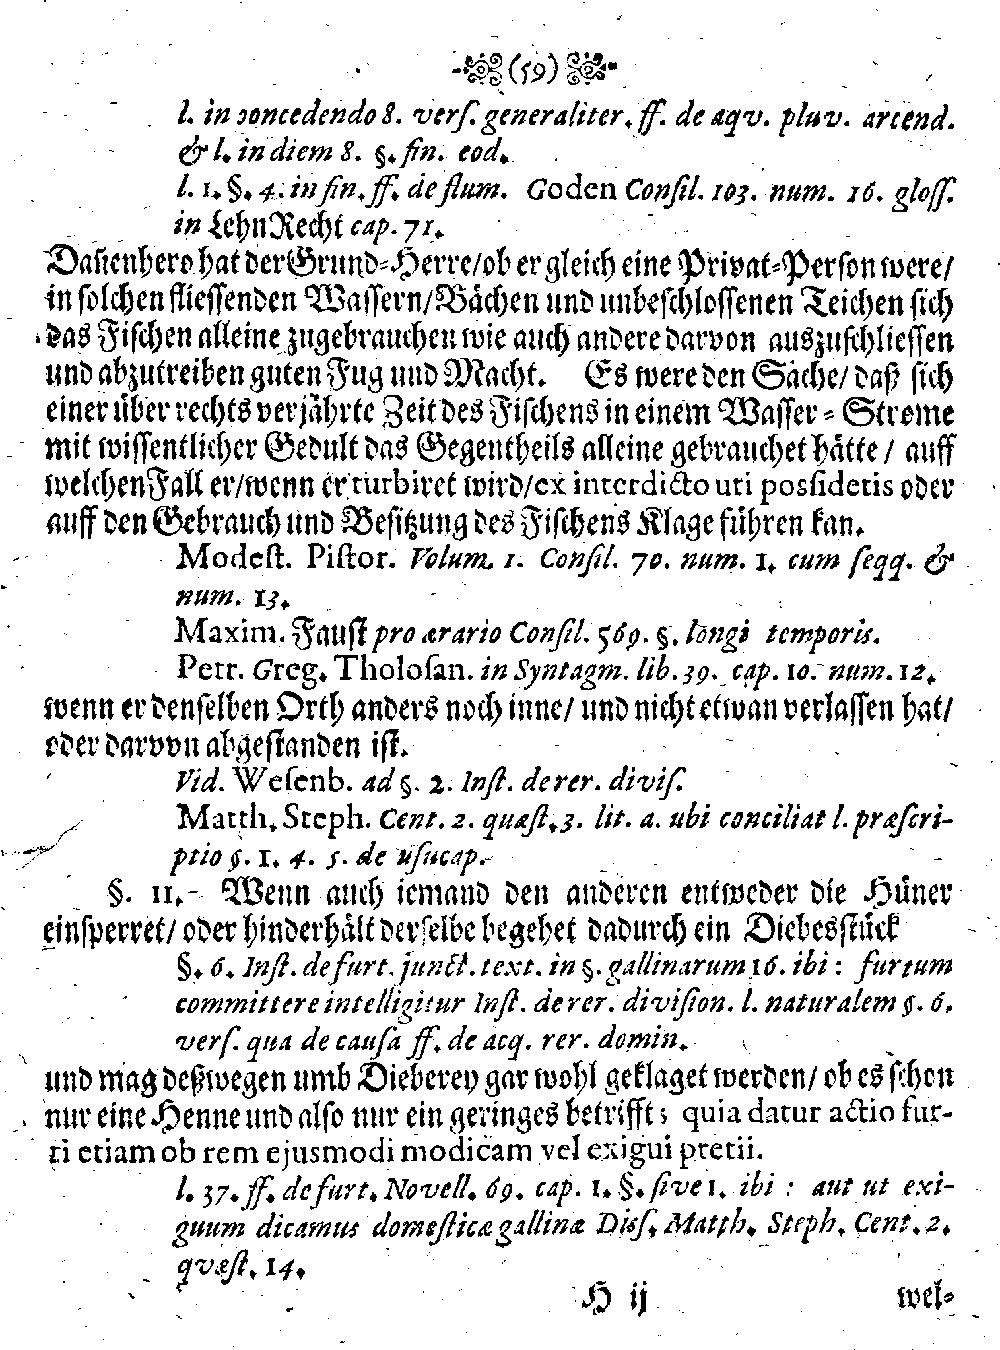 (59)
l. in concedendo 8. verſ. generaliter. ff. de aqv. pluv. arcend.
& l. in diem 8. §. fin. eod.
l. 1. §. 4. in fin. ff. de flum. Goden Conſil. 103. num. 16. gloſſ.
in LehnRecht cap. 71.
Daſienhero hat der Grund-Herre/ob er gleich eine Privat-Perſon were/
in ſolchen flieſſenden Waſſern/Bächen und unbeſchloſſenen Teichen ſich
das Fiſchen alleine zugebrauchen wie auch andere darvon auszuſchlieſſen
und abzutreiben guten Fug und Macht. Es were den Sache/ daß ſich
einer über rechts verjährte Zeit des Fiſchens in einem Waſſer-Strome
mit wiſſentlicher Gedult das Gegentheils alleine gebrauchet hätte / auff
welchen Fall er/wenn er turbiret wird/ex interdicto uti poſſidetis oder
auff den Gebrauch und Beſitzung des Fiſchens Klage führen kan.
Modeſt. Piſtor. Volum. 1. Conſil. 70. num. 1. cum ſeqq. &
num. 13.
Maxim. Fauſt pro ærario Conſil. 569. §. longi temporis.
Petr. Greg. Tholoſan. in Syntagm. lib. 39. cap. 10. num. 12.
wenn er denſelben Orth anders noch inne/ und nicht etwan verlaſſen hat/
oder darvon abgeſtanden iſt.
Vid. Weſenb. ad §. 2. Inſt. de rer. diviſ.
Matth. Steph. Cent. 2. quæſt. 3. lit. a. ubi conciliat l. præſcri-
ptio §. 1. 4. 5. de uſucap.
§. 11. Wenn auch iemand den anderen entweder die Hüner
einſperret/ oder hinderhält derſelbe begehet dadurch ein Diebesſtück
§. 6. Inſt. de furt. junct. text. in §. gallinarum 16. ibi: furtum
committere intelligitur Inſt. de rer. diviſion. l. naturalem §. 6.
verſ. qua de cauſa ff. de acq. rer. domin.
und mag deßwegen umb Dieberey gar wohl geklaget werden/ ob es ſchon
nur eine Henne und alſo nur ein geringes betrifft; quia datur actio fur-
ti etiam ob rem ejusmodi modicam vel exigui pretii.
l. 37. ff. de furt. Novell. 69. cap. 1. §. ſive 1. ibi: aut ut exi-
guum dicamus domeſticæ gallinæ Diſſ. Matth. Steph. Cent. 2.
qvæſt. 14.
H ij wel-